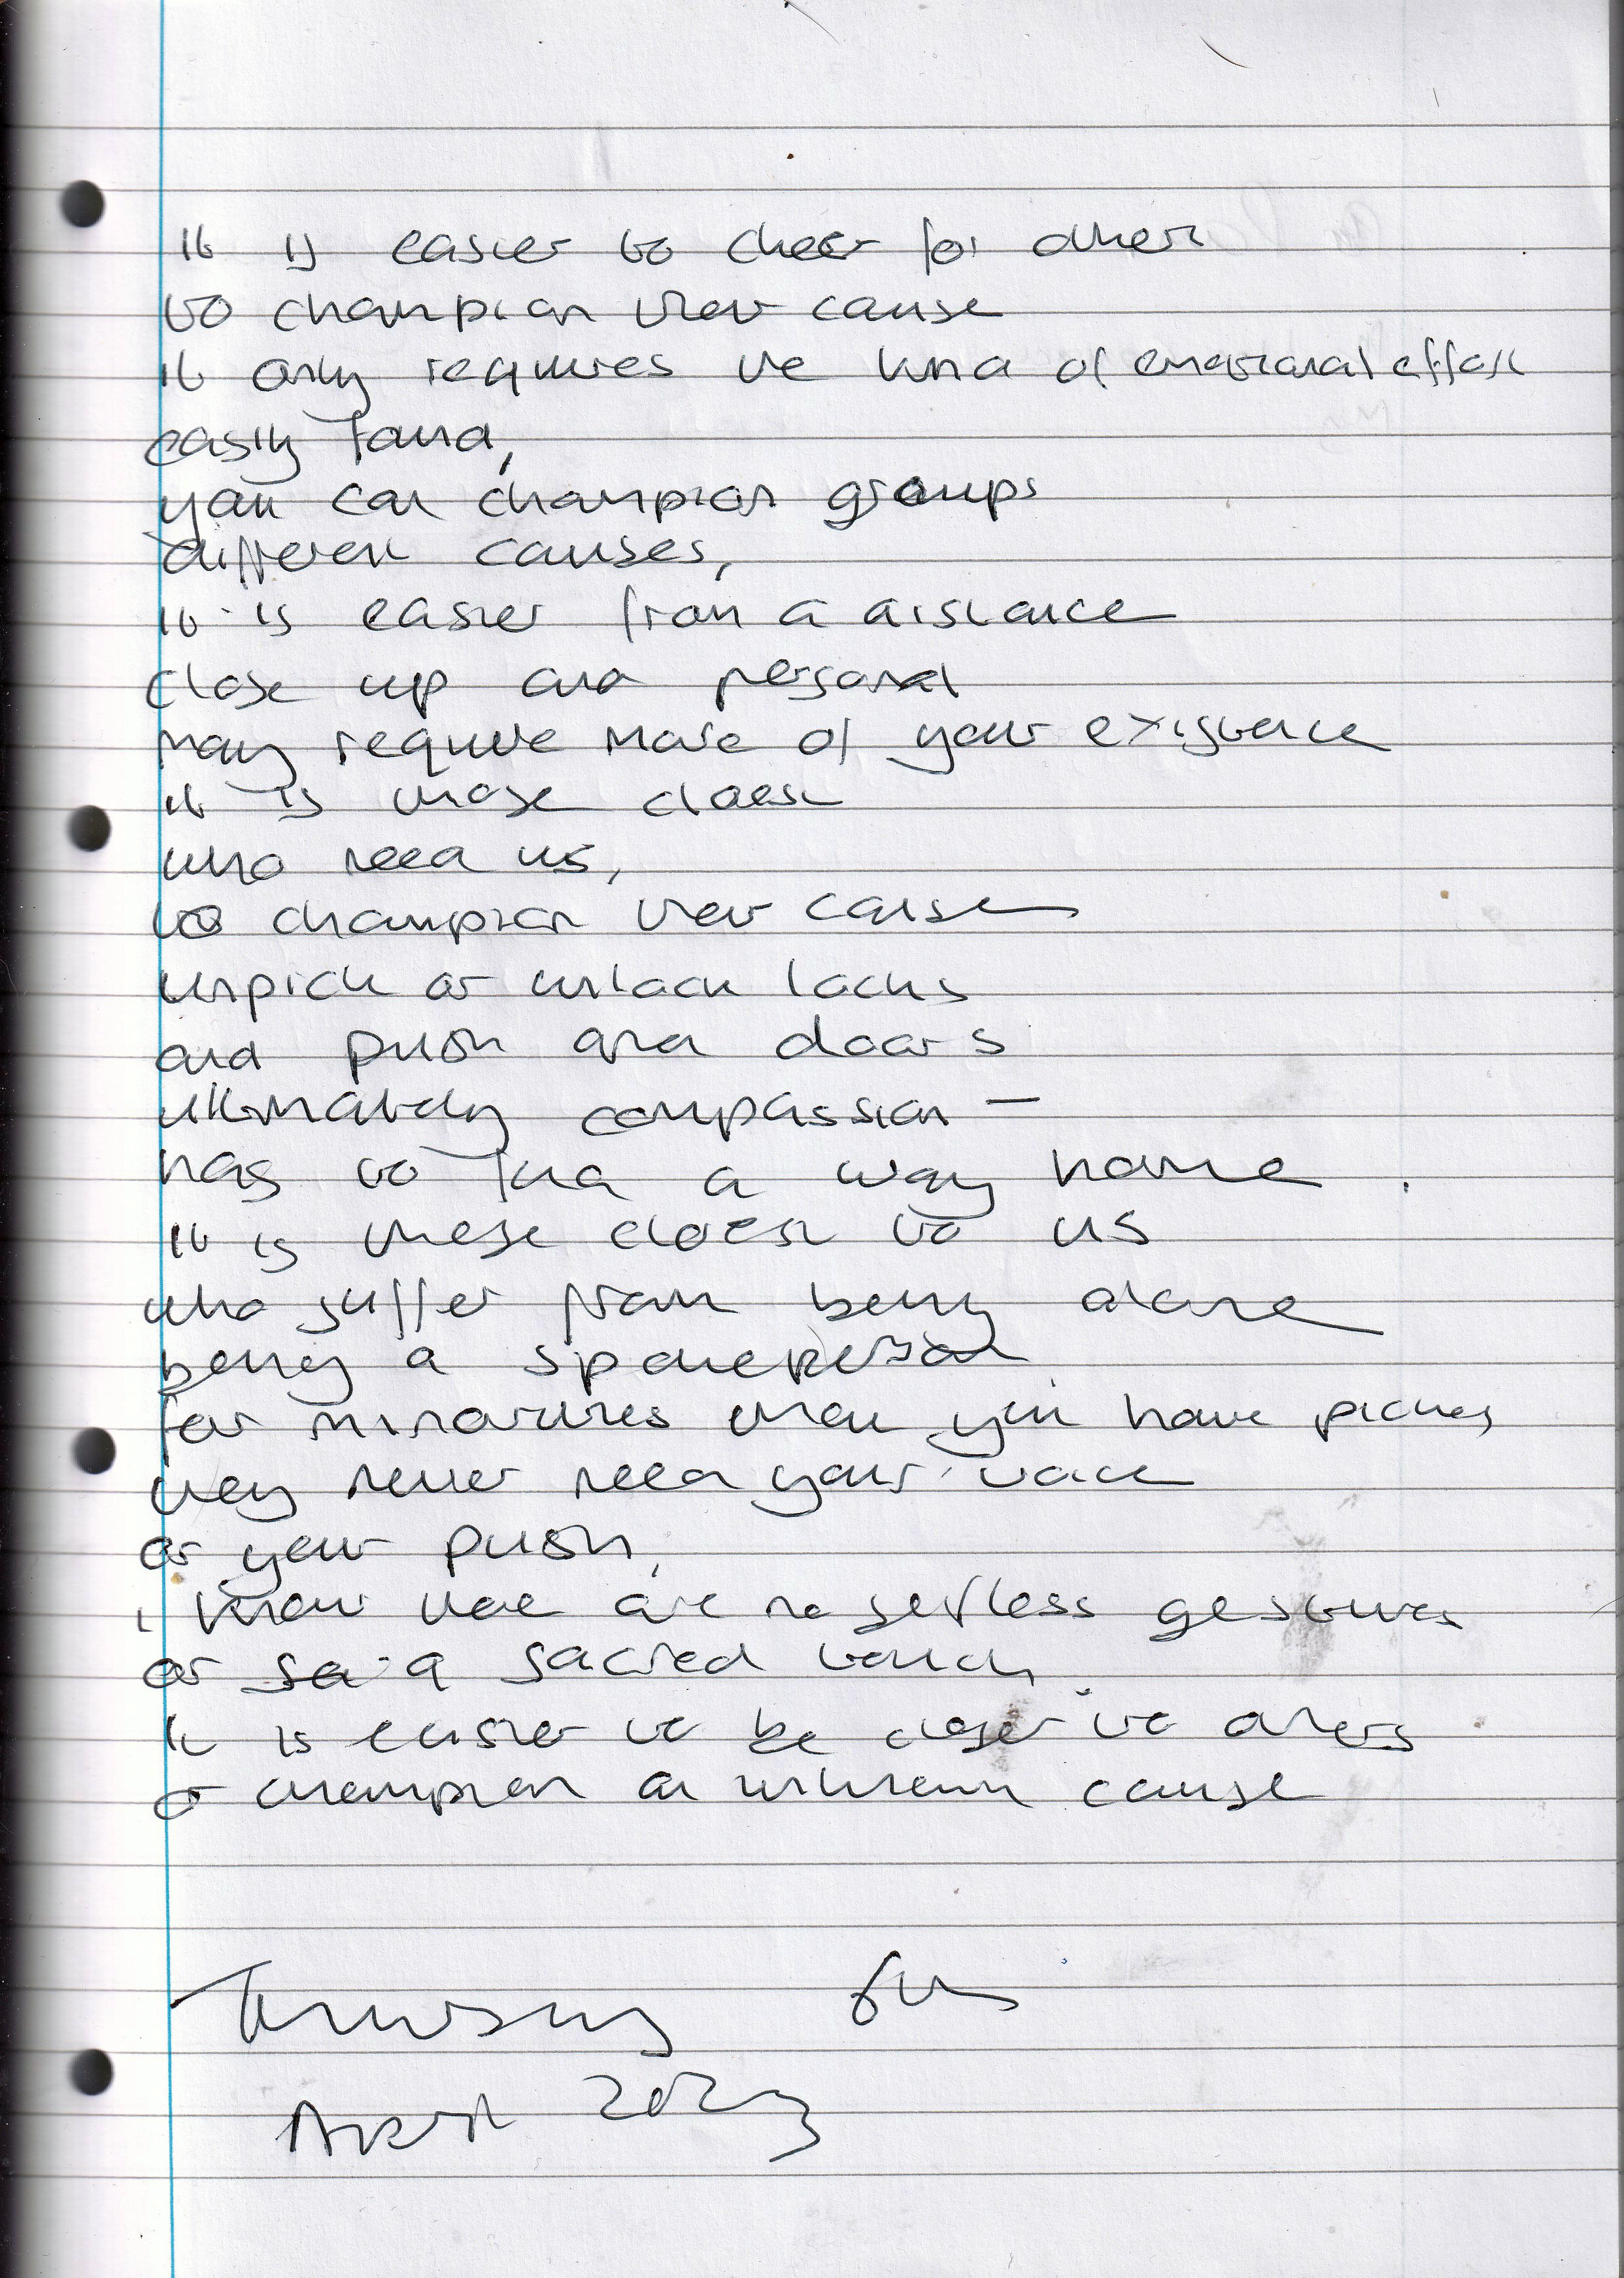 it is easier to cheer for others
to champion their cause
it only requires the kind of emotional effort
easily found,
you can champion groups
different causes,
it is easier from a distance
close up and personal
may require more of your existence
it is those closest
who need us,
to champion their cause
unpick or unlock locks
and push open doors
ultimately compassion –
has to find a way home.
it is these closest to us
who suffer from being alone
being a spokeperson
for minorities when you have picked
they never need your voice
or your push,
i know there are no selfless gestures
or a sacred touch,
it is easier to be closer to others
or champion an unknown cause
Thursday 6th
April 2023